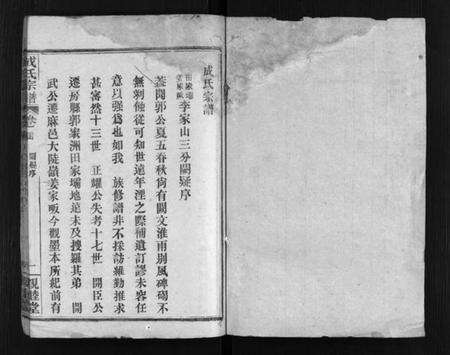 成氏宗譜
田家壪
姜家畈 李家山三分闕疑序
蓋聞郭公夏五春秋尚有闕文淮雨別風碑碣不
無剝蝕從可知世遠年湮之際補遺訂謬未容任
意以強爲也如我 族修譜非不採訪維勤推求
甚密然十三世 正耀公失考十七世 開臣公
遷 縣郭家洲田家壩地遠未及搜羅其弟 開
武公遷麻邑大陡嶺姜家畈今觀墨本所紀前有
成氏宗譜
卷 
闕疑序
一
親睦堂